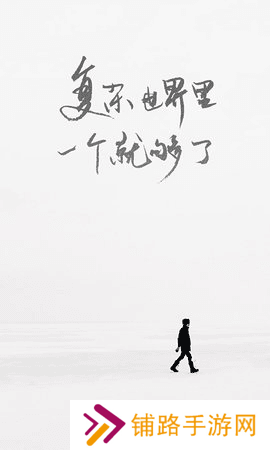 复杂世界里
一个就够了
铺路手游网